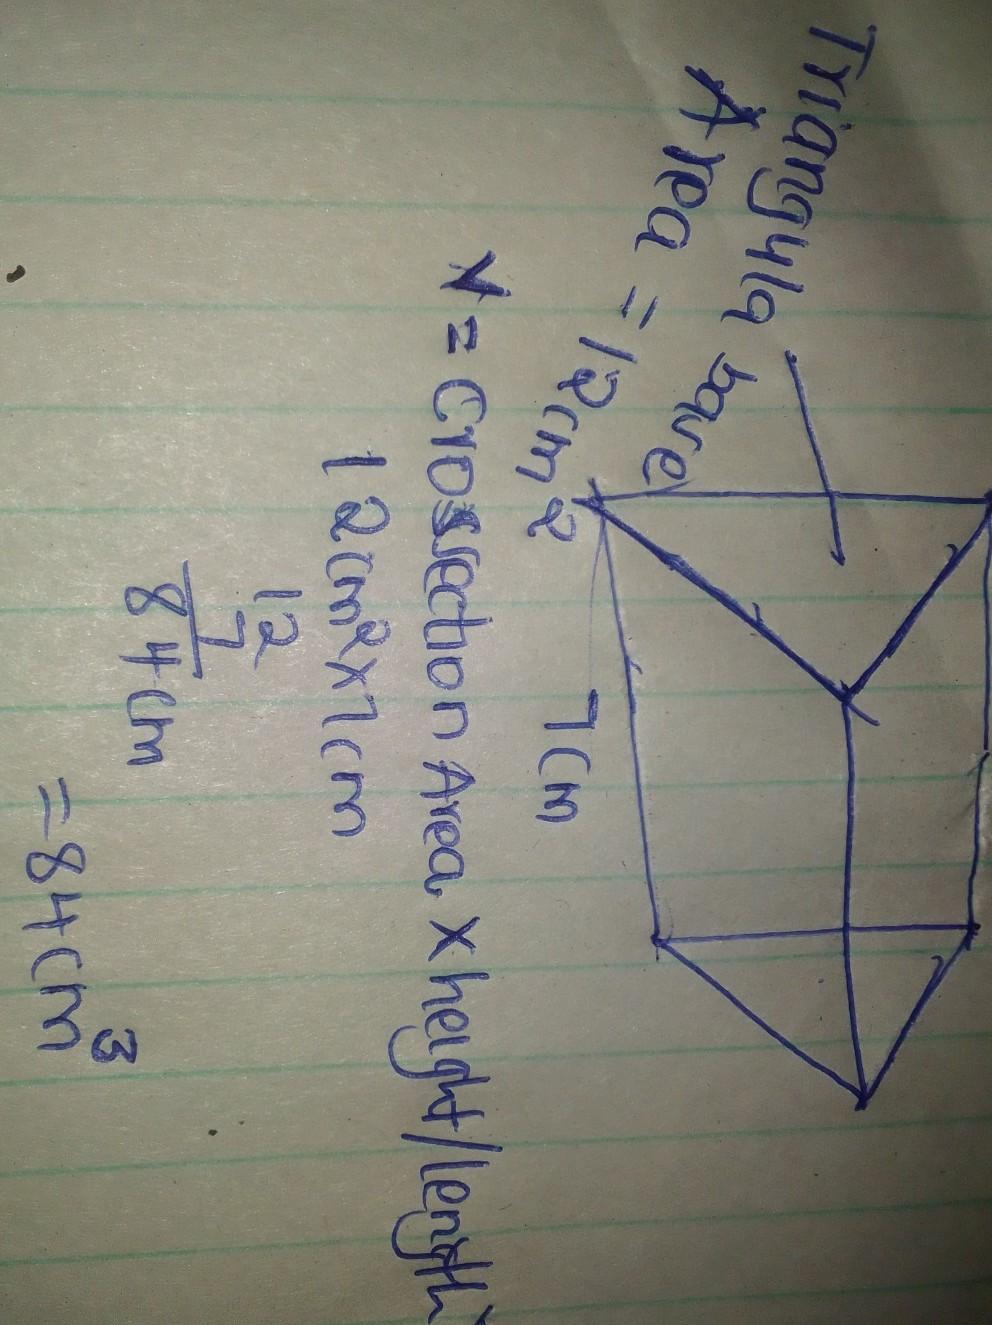 Triangula base
Area = 12cm2
7cm
V = Crossection Area x height/length
12cm²x7cm
12
7
84cm
=84cm³